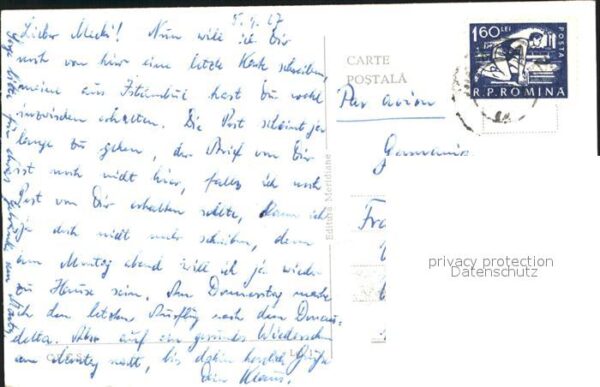 5.9.67
Lieber Michi! Nun will ich Dir
noch von hier eine letzte Karte schreiben,
meine aus Istambul hast Du wohl
inzwischen erhalten. Die Post scheint ja
lange zu gehen, der Brief von Dir
ist noch nicht hier, falls ich noch
Post von Dir erhalten sollte, kann ich
ja doch nicht mehr schreiben, denn
am Montag abend will ich ja wieder
zu Hause sein. Am Donnerstag mache
ich den letzten Ausflug nach dem Donau-
delta. Also auf ein gesundes Wiedersehen
am Montag nacht, bis dahin herzliche Grüße
Dein Klaus.
CARTE
POȘTALĂ
Par avion
Germania
Fra
Editura Meridiane
1,60 LEI
POSTA
R.P.ROMINA
privacy protection
Datenschutz